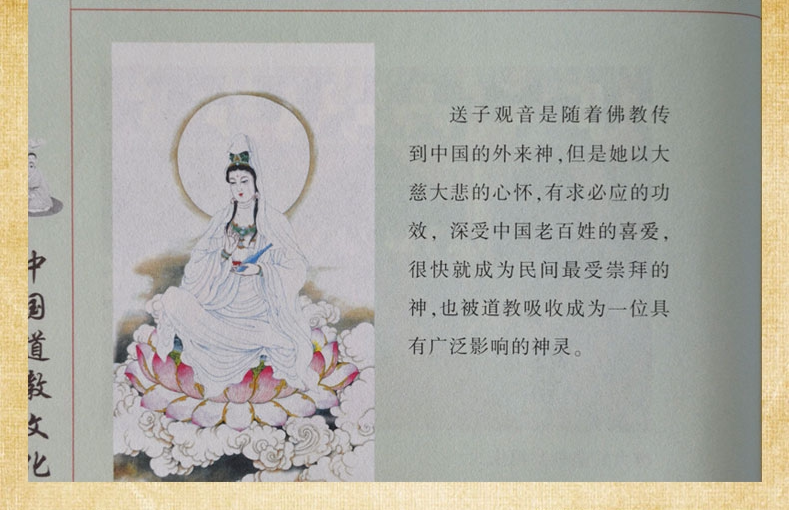 送子观音是随着佛教传
到中国的外来神,但是她以大
慈大悲的心怀,有求必应的功
效，深受中国老百姓的喜爱，
很快就成为民间最受崇拜的
神,也被道教吸收成为一位具
有广泛影响的神灵。
中国道教文化